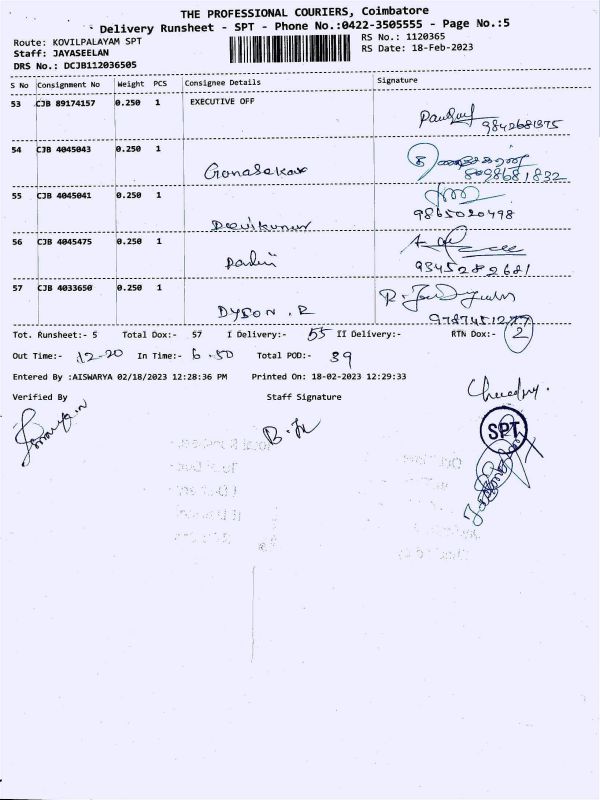 THE PROFESSIONAL COURIERS, Coimbatore
Delivery Runsheet - SPT - Phone No.:0422-3505555 - Page No.:5
Route: KOVILPALAYAM SPT RS No.: 1120365
Staff: JAYASEELAN RS Date: 18-Feb-2023
DRS No.: DCJB112036505
S No Consignment No Weight PCS Consignee Details Signature
53 CJB 89174157 0.250 1 EXECUTIVE OFF
9842681375
54 CJB 4045043 0.250 1
Gonasekar 8098681832
55 CJB 4045041 0.250 1
9865020498
56 CJB 4045475 0.250 1
9345282681
57 CJB 4033650 0.250 1
DYSON . R
Tot. Runsheet:- 5 Total Dox:- 57 I Delivery:- 55 II Delivery:- RTN Dox:- 2
Out Time:- 12-20 In Time:- 6.50 Total POD:- 39
Entered By :AISWARYA 02/18/2023 12:28:36 PM Printed On: 18-02-2023 12:29:33
Verified By Staff Signature
SPT